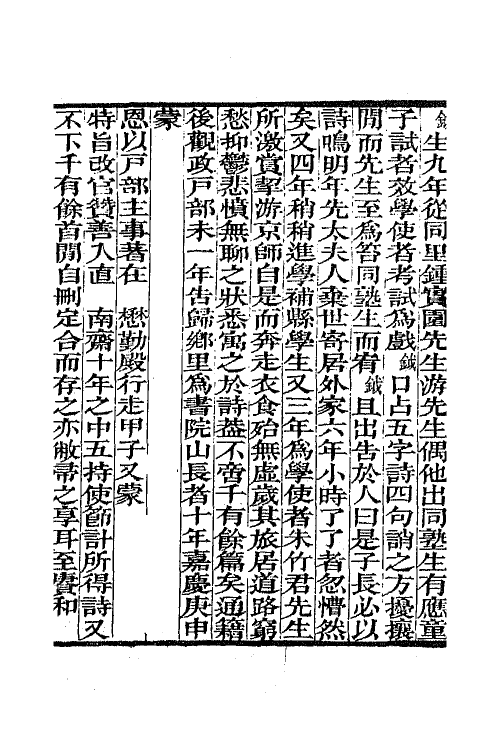 鉞生九年從同里鍾寶園先生游先生偶他出同塾生有應童
子試者效學使者考試為戲鉞口占五字詩四句誚之方擾攘
閒而先生至為笞同塾生而宥鉞且出告於人曰是子長必以
詩鳴明年先太夫人棄世寄居外家六年小時了了者忽懵然
矣又四年稍稍進學補縣學生又三年為學使者朱竹君先生
所激賞挈游京師自是而奔走衣食殆無虛歲其旅居道路窮
愁抑鬱悲憤無聊之狀悉寓之於詩葢不啻千有餘篇矣通籍
後觀政戸部未一年告歸鄉里為書院山長者十年嘉慶庚申
蒙
恩以戸部主事著在　懋勤殿行走甲子又蒙
特旨改官贊善入直　南齋十年之中五持使節計所得詩又
不下千有餘首閒自刪定合而存之亦敝帚之享耳至賡和